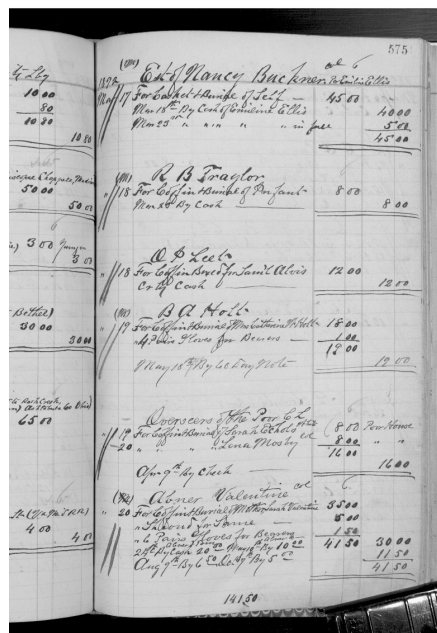 575
1892 Est of Nancy Buckner col 6
Pr Emiline Ellis
Mar 17 For Casket & Burial of Self 45 00
Mar 18th By Cash of Emiline Ellis 40 00
Mar 23rd " " " " " in full 5 00
45 00
R B Traylor
" 18 For Coffin & Burial of Infant 8 00
Mar 28 By Cash 8 00
O P Leet
" 18 For Coffin Boxed for Saml Alvis 12 00
Cr By Cash 12 00
B A Holt
" 19 For Coffin & Burial of Mrs W Holt 18 00
" 4 Pairs Gloves for Bearers 1 00
19 00
May 18th By 60 Day Note 19 00
Overseers of the Poor
" 19 For Coffin & Burial of Sarah Echols 8 00 Poor House
" 20 " " " " Lena Mosby col 8 00 " "
16 00
Apr 9th By Check 16 00
Abner Valentine col 6
" 20 For Coffin & Burial of Mother Sarah Valentine 35 00
" Shroud for Same 5 00
" 6 Pairs Gloves for Bearers 1 50
By Cash 20 00 By 10 00 41 50 30 00
Aug 9th By 6 50 By 5 00 11 50
41 50
141.50
10 00
80
10 80
10 80
50 00
50 00
3 00
3 00
Bethel)
30 00
30 00
65 00
4 00
4 00